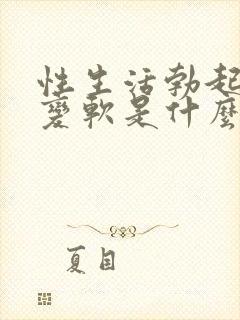 性生活勃起
變軟是什麼
夏目